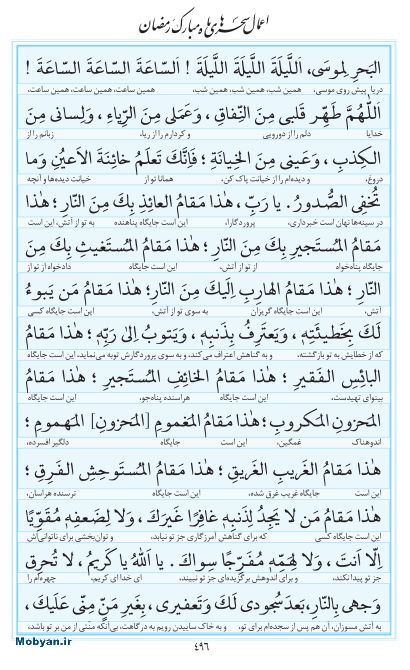 اعمال سحرهای ماه مبارک رمضان
البَحرِ لِموسَی، اَللَّیلَةَ اللَّیلَةَ اللَّیلَةَ ! اَلسّاعَةَ السّاعَةَ السّاعَةَ !
دریا پیش روی موسی، همین شب، همین شب، همین شب، همین ساعت، همین ساعت، همین ساعت.
اَللّٰهُمَّ طَهِّر قَلبی مِنَ النِّفاقِ، وَعَمَلی مِنَ الرِّیاءِ، وَلِسانی مِنَ
خدایا دلم را از دورویی و کردارم را از ریا، زبانم را از
الکِذبِ، وَعَینی مِنَ الخِیانَةِ ؛ فَاِنَّكَ تَعلَمُ خائِنَةَ الاَعیُنِ وَما
دروغ، و دیده‌ام را از خیانت پاک کن، همانا تو از خیانت دیده‌ها و آنچه
تُخفِی الصُّدورُ. یا رَبِّ، هٰذا مَقامُ العائِذِ بِكَ مِنَ النّارِ ؛ هٰذا
در سینه‌ها نهان است خبرداری، پروردگارا، این است جایگاه پناهنده به تو از آتش، این است
مَقامُ المُستَجیرِ بِكَ مِنَ النّارِ ؛ هٰذا مَقامُ المُستَغیثِ بِكَ مِنَ
جایگاه پناه‌خواه از تو از آتش، این است جایگاه دادخواه از تو از
النّارِ ؛ هٰذا مَقامُ الهارِبِ اِلَیكَ مِنَ النّارِ؛ هٰذا مَقامُ مَن یَبوءُ
آتش، این است جایگاه گریزان به سوی تو از آتش، این است جایگاه کسی
لَكَ بِخَطیئَتِهِ، وَیَعتَرِفُ بِذَنبِهِ، وَیَتوبُ اِلیٰ رَبِّهِ؛ هٰذا مَقامُ
که از خطایش به تو بازگشته، و به گناهش اعتراف می‌کند، و به سوی پروردگارش توبه می‌نماید، این است جایگاه
البائِسِ الفَقیرِ ؛ هٰذا مَقامُ الخائِفِ المُستَجیرِ ؛ هٰذا مَقامُ
بینوای تهیدست، این است جایگاه هراسنده پناه‌جو، این است جایگاه
المَحزونِ المَکروبِ؛ هٰذا مَقامُ المَغمومِ [المَحزونِ] المَهمومِ ؛
اندوهناک غمگین، این است جایگاه دلگیر افسرده،
هٰذا مَقامُ الغَریبِ الغَریقِ؛ هٰذا مَقامُ المُستَوحِشِ الفَرِقِ ؛
این است جایگاه غریب غرق شده، این است جایگاه ترسنده هراسان،
هٰذا مَقامُ مَن لا یَجِدُ لِذَنبِهِ غافِرًا غَیرَكَ، وَلا لِضَعفِهِ مُقَوِّیًا
این است جایگاه کسی که برای گناهش آمرزگاری جز تو نیابد، و توان‌بخشی برای ناتوانی‌اش
اِلّا اَنتَ، وَلا لِهَمِّهِ مُفَرِّجًا سِواكَ. یا اَللهُ یا کَریمُ، لا تُحرِق
جز تو پیدا نکند، و برای اندوهش برگزیده‌ای جز تو نبیند. ای خدا ای کریم، چهره‌ام را
وَجهی بِالنّارِ، بَعدَ سُجودی لَكَ وَتَعفیری، بِغَیرِ مَنٍّ مِنّی عَلَیكَ،
به آتش مسوزان، آن هم پس از سجده‌ام برای تو، و به خاک ساییدن رویم به درگاهت، بی‌آنکه منّتی از من بر تو باشد،
۴۹۶
Mobyan.ir